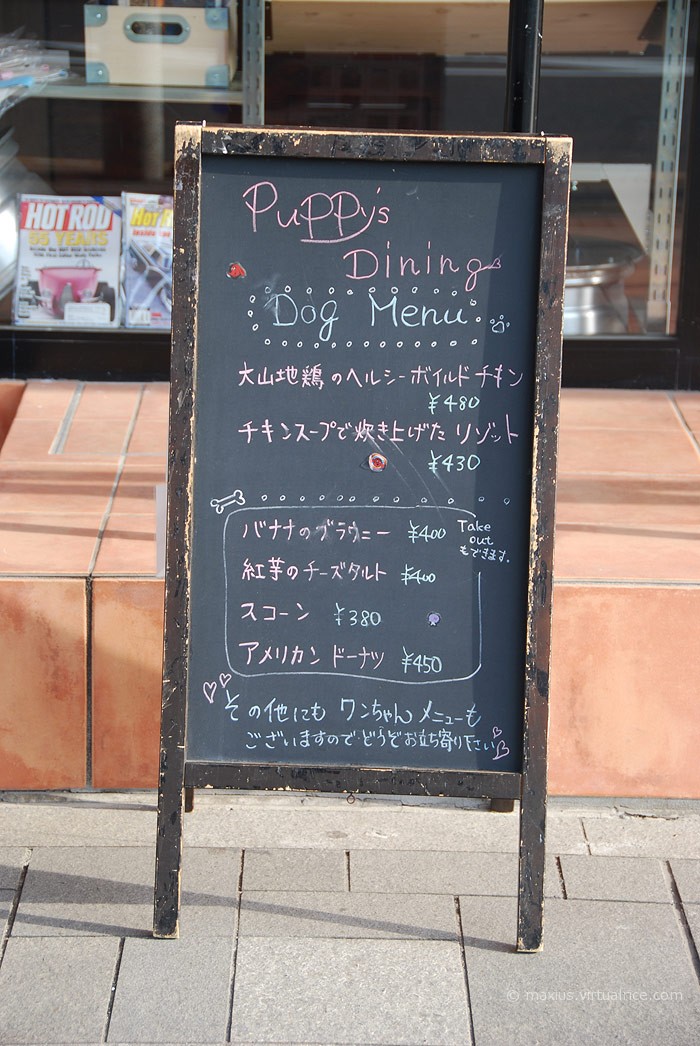 HOT ROD
55 YEARS
Puppy's
Dining
Dog Menu
大山地鶏のヘルシーボイルドチキン
¥480
チキンスープで炊き上げたリゾット
¥430
バナナのブラウニー ¥400
紅芋のチーズタルト ¥400
スコーン ¥380
アメリカンドーナツ ¥450
Take
out
もできます。
その他にもワンちゃんメニューも
ございますので・どうぞお立ち寄り下さい
© maxius.virtualnce.com